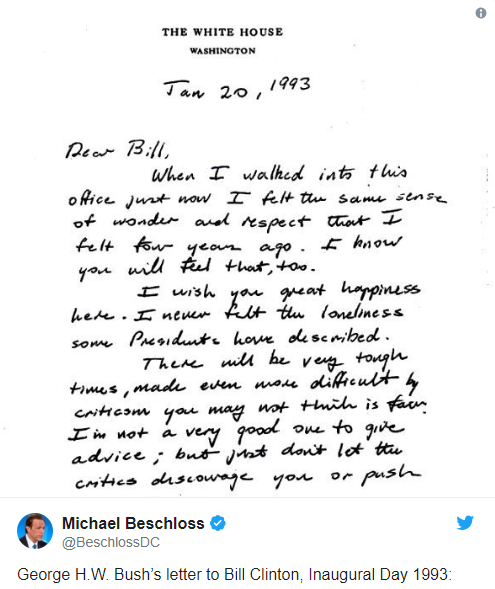 THE WHITE HOUSE
WASHINGTON
Jan 20, 1993
Dear Bill,
When I walked into this
office just now I felt the same sense
of wonder and respect that I
felt four years ago. I know
you will feel that, too.
I wish you great happiness
here. I never felt the loneliness
some Presidents have described.
There will be very tough
times, made even more difficult by
criticism you may not think is fair.
I'm not a very good one to give
advice; but just don't let the
critics discourage you or push
Michael Beschloss
@BeschlossDC
George H.W. Bush’s letter to Bill Clinton, Inaugural Day 1993: